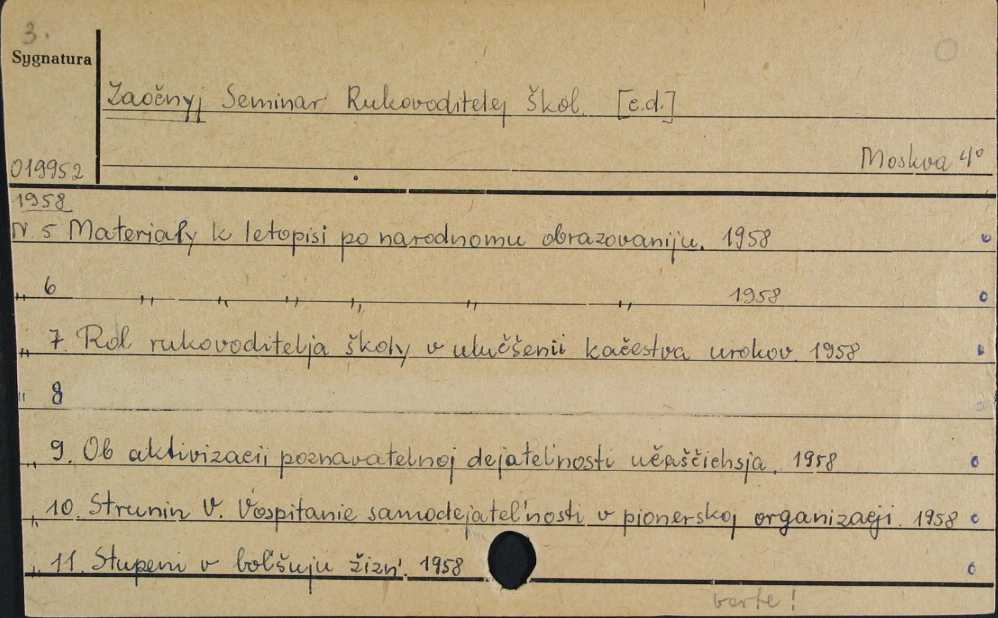 3.
Sygnatura
Zaočnyj Seminar Rukovoditelej Škol. [c.d.]
019952
Moskva 4°
1958
N. 5 Materiały k letopisi po narodnomu obrazovaniju. 1958
" 6 " " " " " " 1958
" 7. Rol rukovoditelja školy v ulučšenii kačestva urokov. 1958
" 8
" 9. Ob aktivizacii poznavatelnoj dejatel'nosti učaščichsja. 1958
" 10. Strunin V. Vospitanie samodejatel'nosti v pionerskoj organizacji. 1958
" 11. Stupeni v bol'šuju žizn'. 1958
verte!